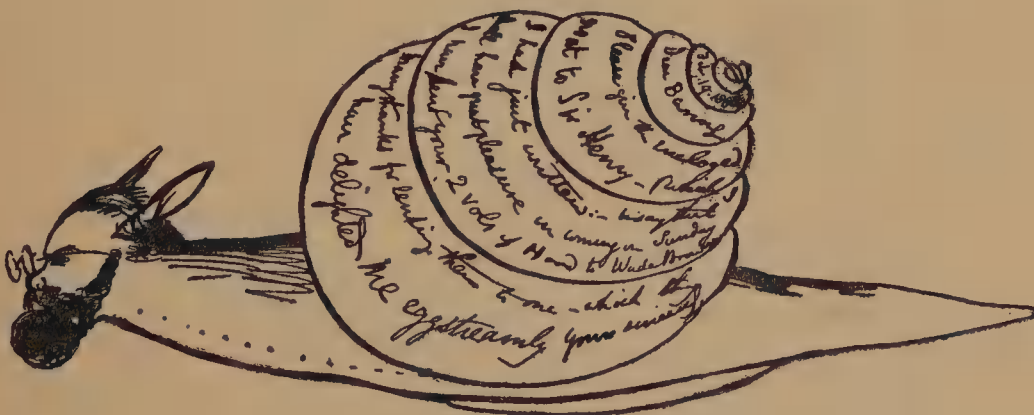 Feb. 19. 1864
Dear Baring
Please give the enclosed
nat to Sir Henry –
I had just written :– to say that
I have great pleasure in coming on Sunday
I have sent your 2 vols of H and to Wade
many thanks for lending them to me – which they
have delighted me eggstreamly yours sincerely